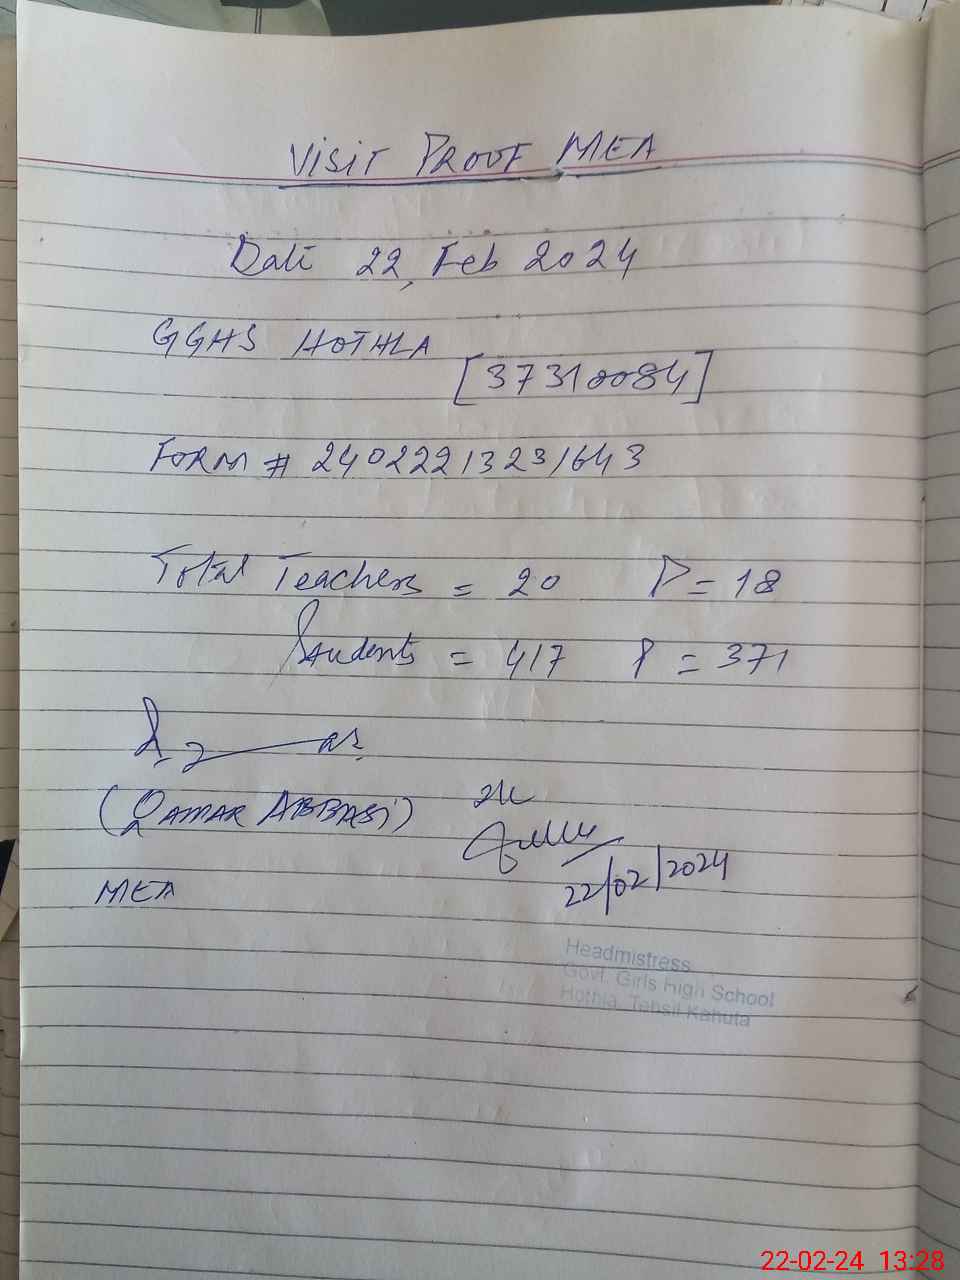 VISIT PROOF MEA
Date 22, Feb 2024
GGHS HOTHLA
[37310084]
FORM # 24022213231643
Total Teachers = 20 P = 18
Students = 417 P = 371
(QAMAR ABBASI)
MEA
22/02/2024
Headmistress
Govt. Girls High School
Hothla, Tehsil Kahuta
22-02-24 13:28